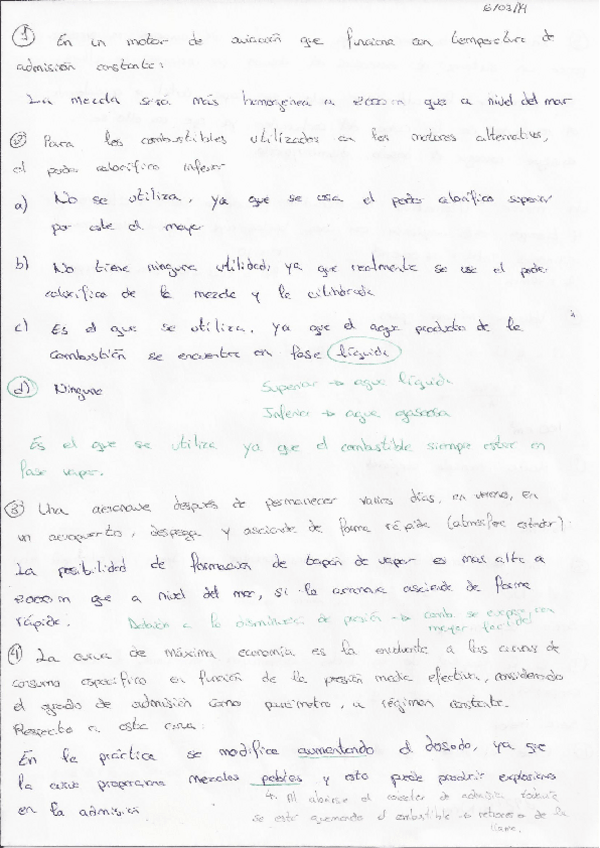 6/03/14
① En un motor de aviación que funciona con temperatura de
admisión constante:
La mezcla será más homogenea a 2000 m que a nivel del mar
② Para los combustibles utilizados en los motores alternativos,
el poder calorífico inferior
a) No se utiliza, ya que se usa el poder calorífico superior
por este el mayor
b) No tiene ninguna utilidad, ya que realmente se usa el poder
calorífico de la mezcla y la cilindrada
c) Es el que se utiliza, ya que el agua producto de la
combustión se encuentra en fase líquida
d) Ninguna
Superior → agua líquida
Inferior → agua gaseosa
Es el que se utiliza ya que el combustible siempre estar en
fase vapor.
③ Una aeronave después de permanecer varios días, en verano, en
un aeropuerto, despega y asciende de forma rápida (atmósfera estándar):
La posibilidad de formación de tapón de vapor es mas alta a
2000 m que a nivel del mar, si la aeronave asciende de forma
rápida.
Debido a la disminución de presión → comb. se evapora con
mayor facilidad
④ La curva de máxima economía es la envolvente a las curvas de
consumo especifico en función de la presión media efectiva, considerando
el grado de admisión como parámetro, a régimen constante.
Respecto a esta curva:
En la práctica se modifica aumentando el dosado, ya que
la curva proporciona mezclas pobres y esto puede producir explosiones
en la admisión
4. Al abrirse el colector de admisión todavía
se está quemando el combustible → retroceso de la
llama.